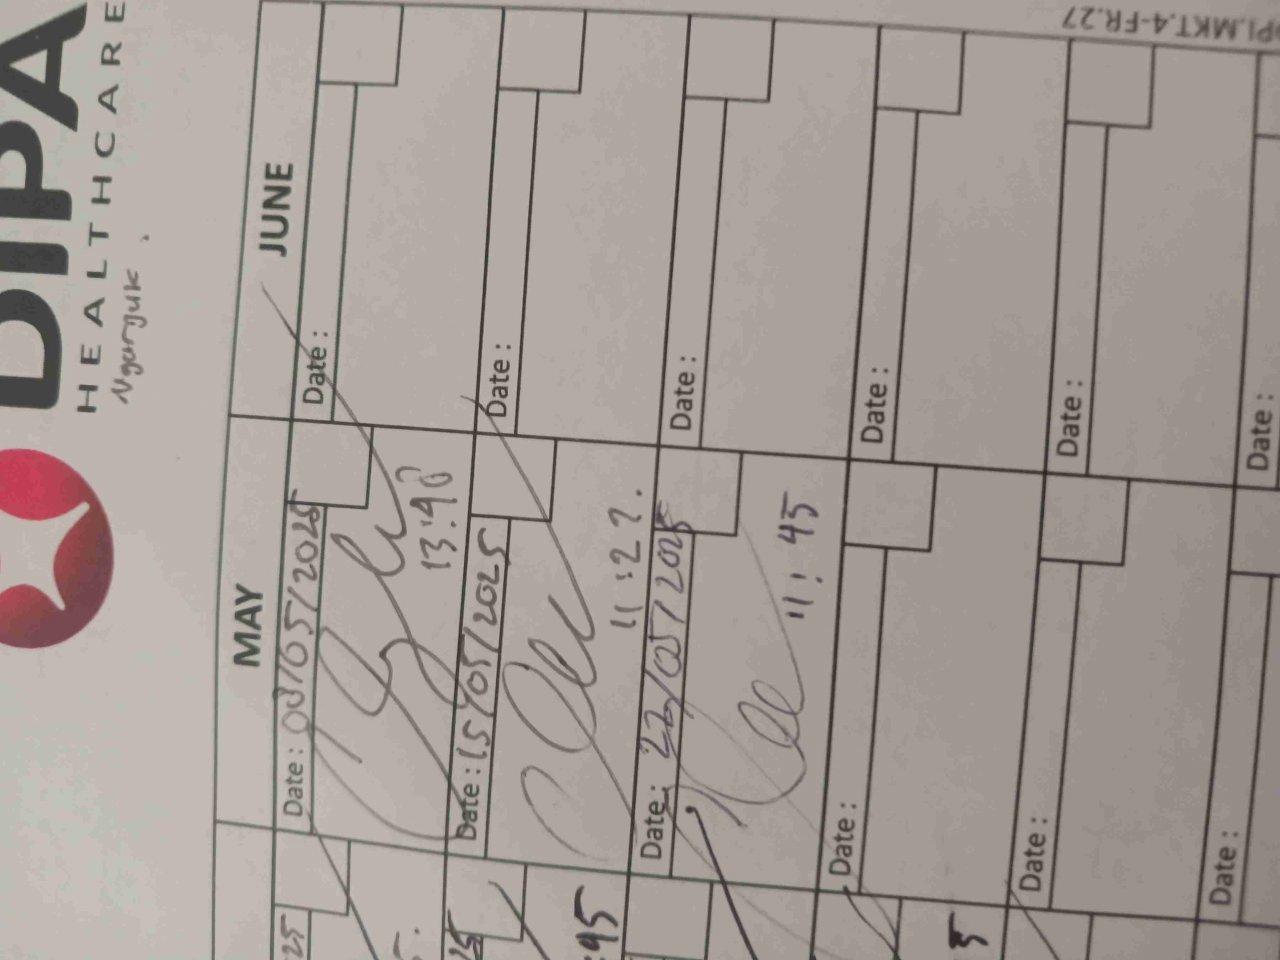 DIPA
HEALTHCARE
Nganjuk.
DPI.MKT.4-FR.27
MAY
JUNE
Date : 08/05/2025
Date :
13:40
Date : 15/05/2025
Date :
11:22.
Date : 22/05/2025
Date :
11:45
Date :
Date :
Date :
Date :
Date :
Date :
25
5.
25
:45
5